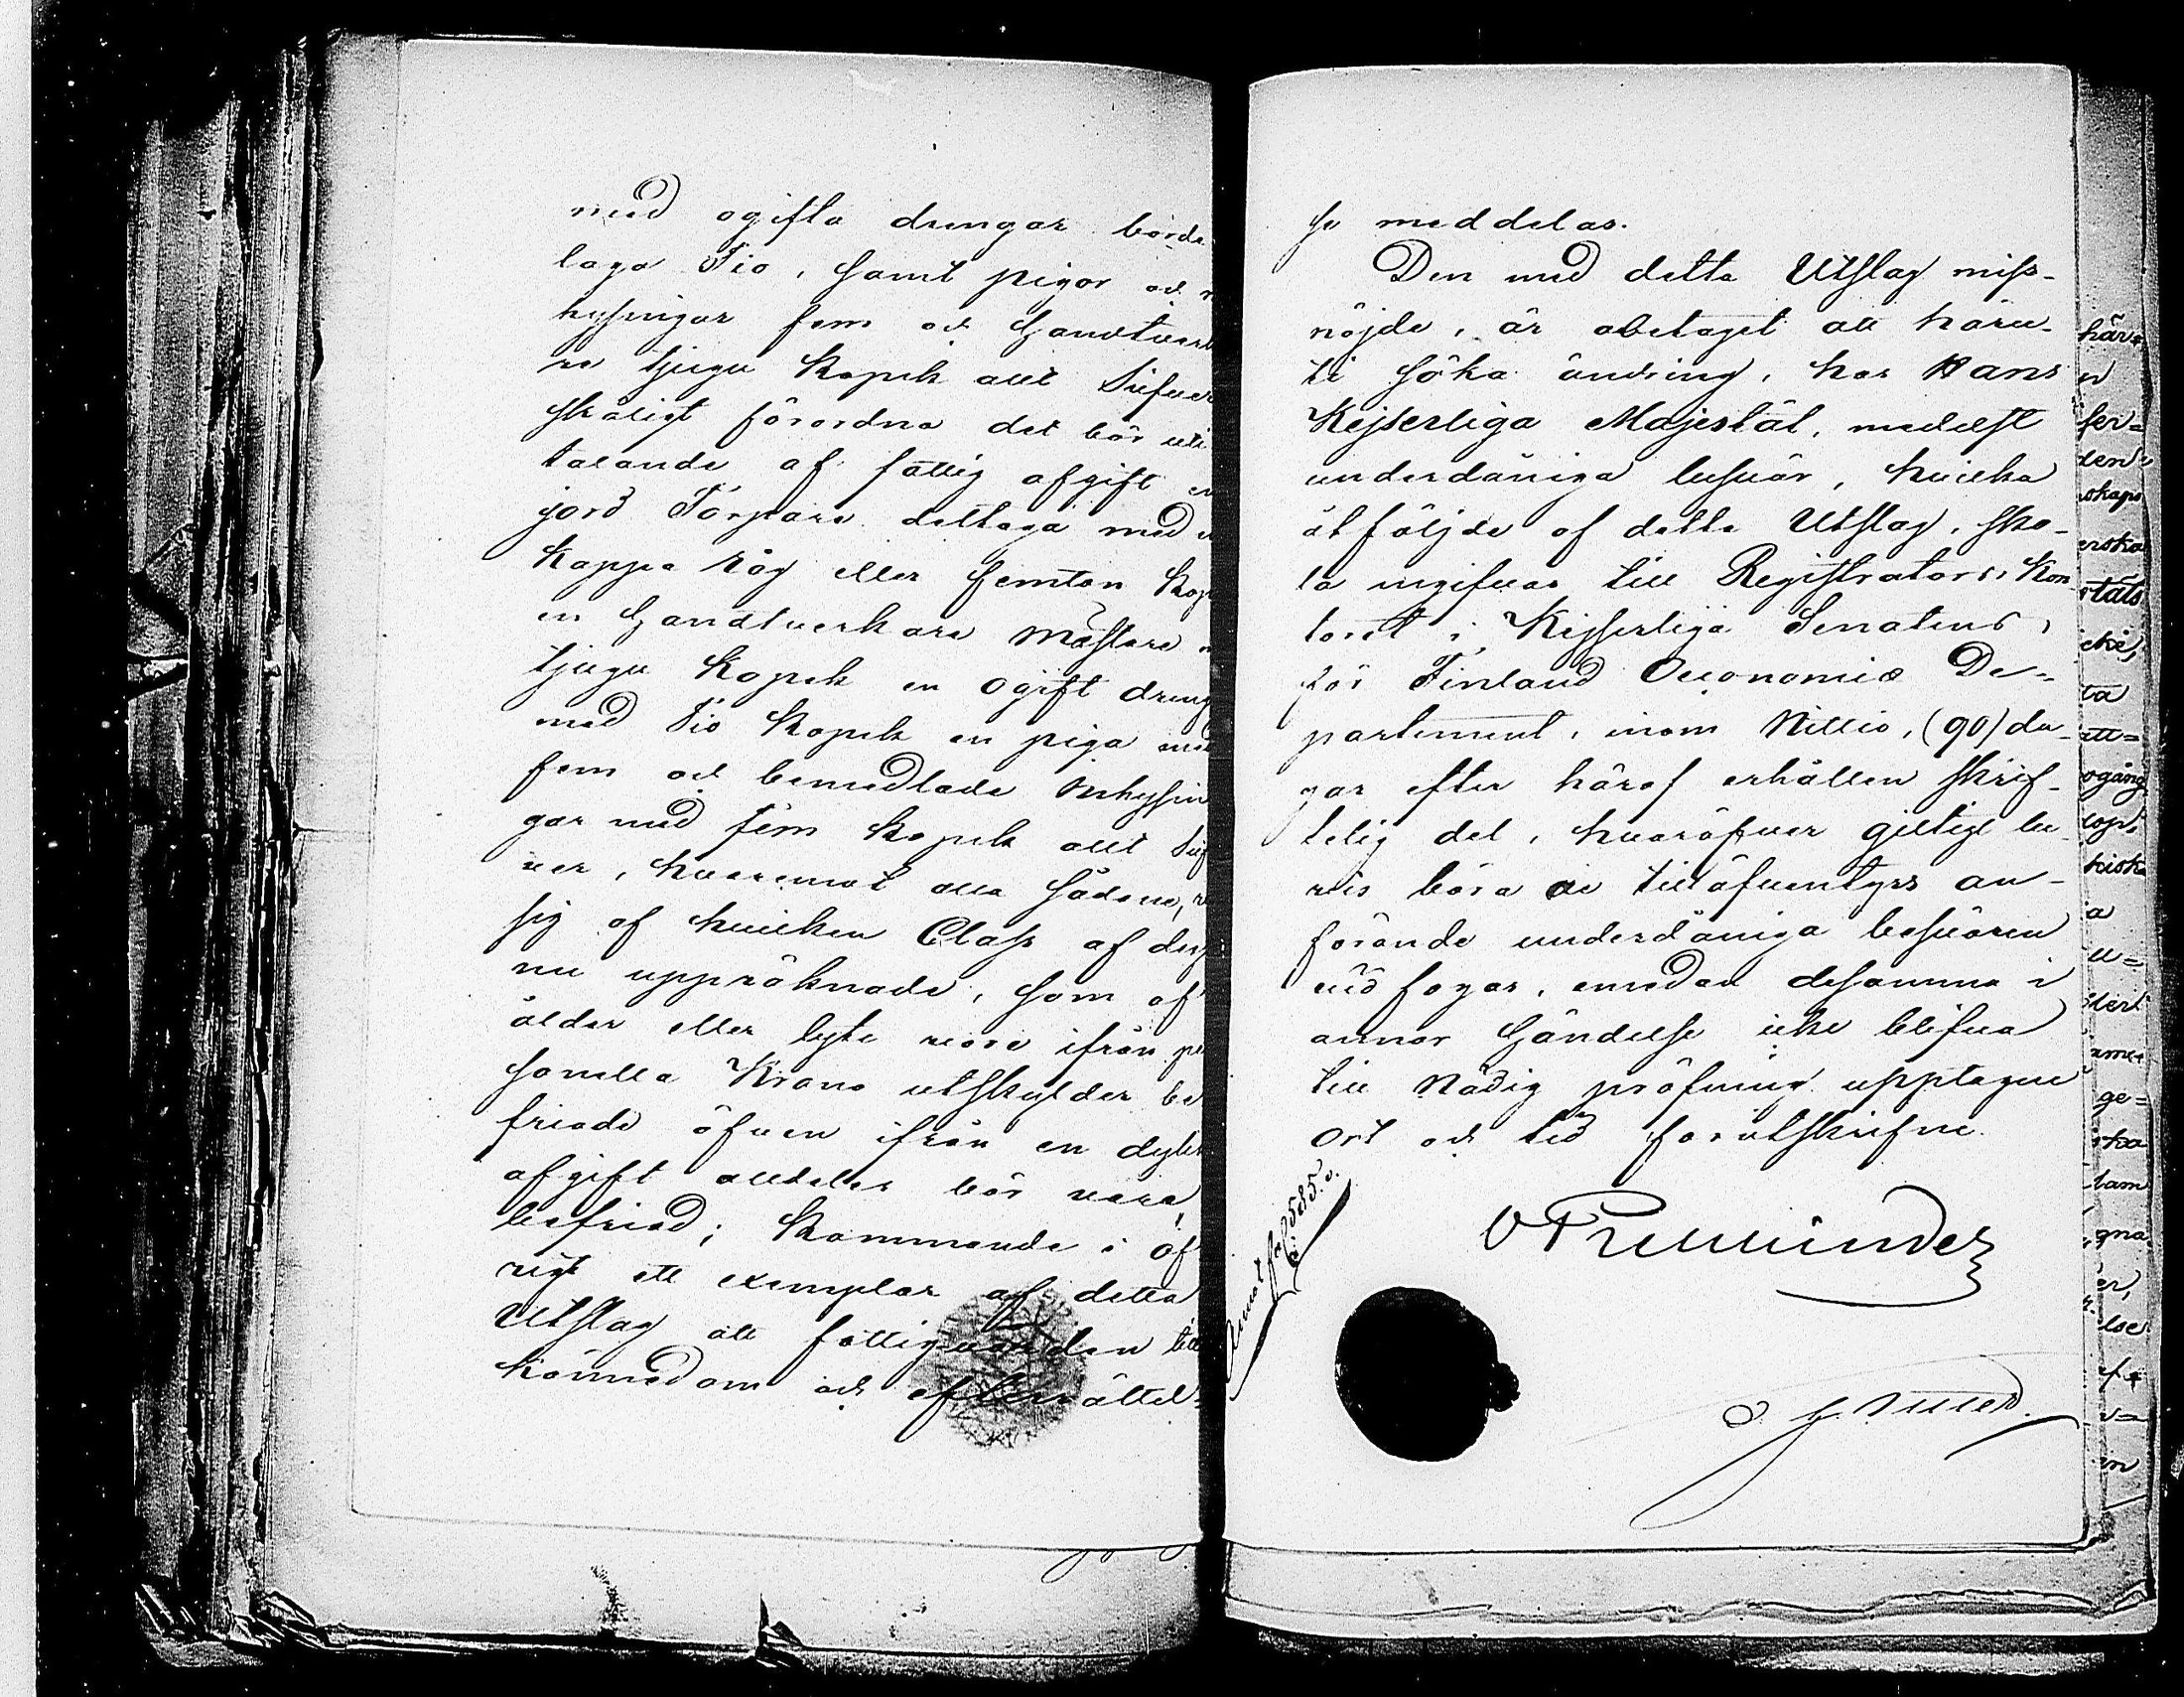 med ogifta drengar börde
laga Tio, samt pigor och
hysingar fem och Handtverk
re tjugu Kopek allt Silfver
skäligt förordna det bör uti
talande af fattig afgift en
jord Torpare deltaga med e
Kappa råg eller femton Kop
en Handtverkare Mästare
tjugu Kopek en ogift dreng
med Tio Kopek en piga med
fem och bemedlade Inhysin
gar med fem Kopek allt Silf
ver, hvaremot alla sådane,
sig af hvilken Class af desse
nu uppräknade, som af
ålder eller lyte äro ifrån per
sonella Krono utskylder be
friade öfven ifrån en dylik
afgift alldeles bör vara
befriad; Kommande i öf
rigt ett exemplar af detta
Utslag att fattigvården till
kännedom och efterrättel-
se meddelas.
Den med detta Utslag miss-
nöjde, är obetaget att häru-
ti söka ändring, hos Hans
Kejserliga Majestät, medelst
underdåniga besvär, hvilka
åtföljde af detta Utslag, sko-
la ingifvas till Registrators Kon-
toret i Kejserliga Senatens
för Finland Oeconomiæ De-
partement, inom Nittio, (90) da-
gar efter häraf erhållen skrif-
telig del, hvaröfver giltigt be-
vis böra de till äfventyrs an-
förande underdåniga besvären
vid fogas, emedan desamma i
annor händelse icke blifva
till Nådig pröfning upptagne
Ort och tid förutskrifne.
585.